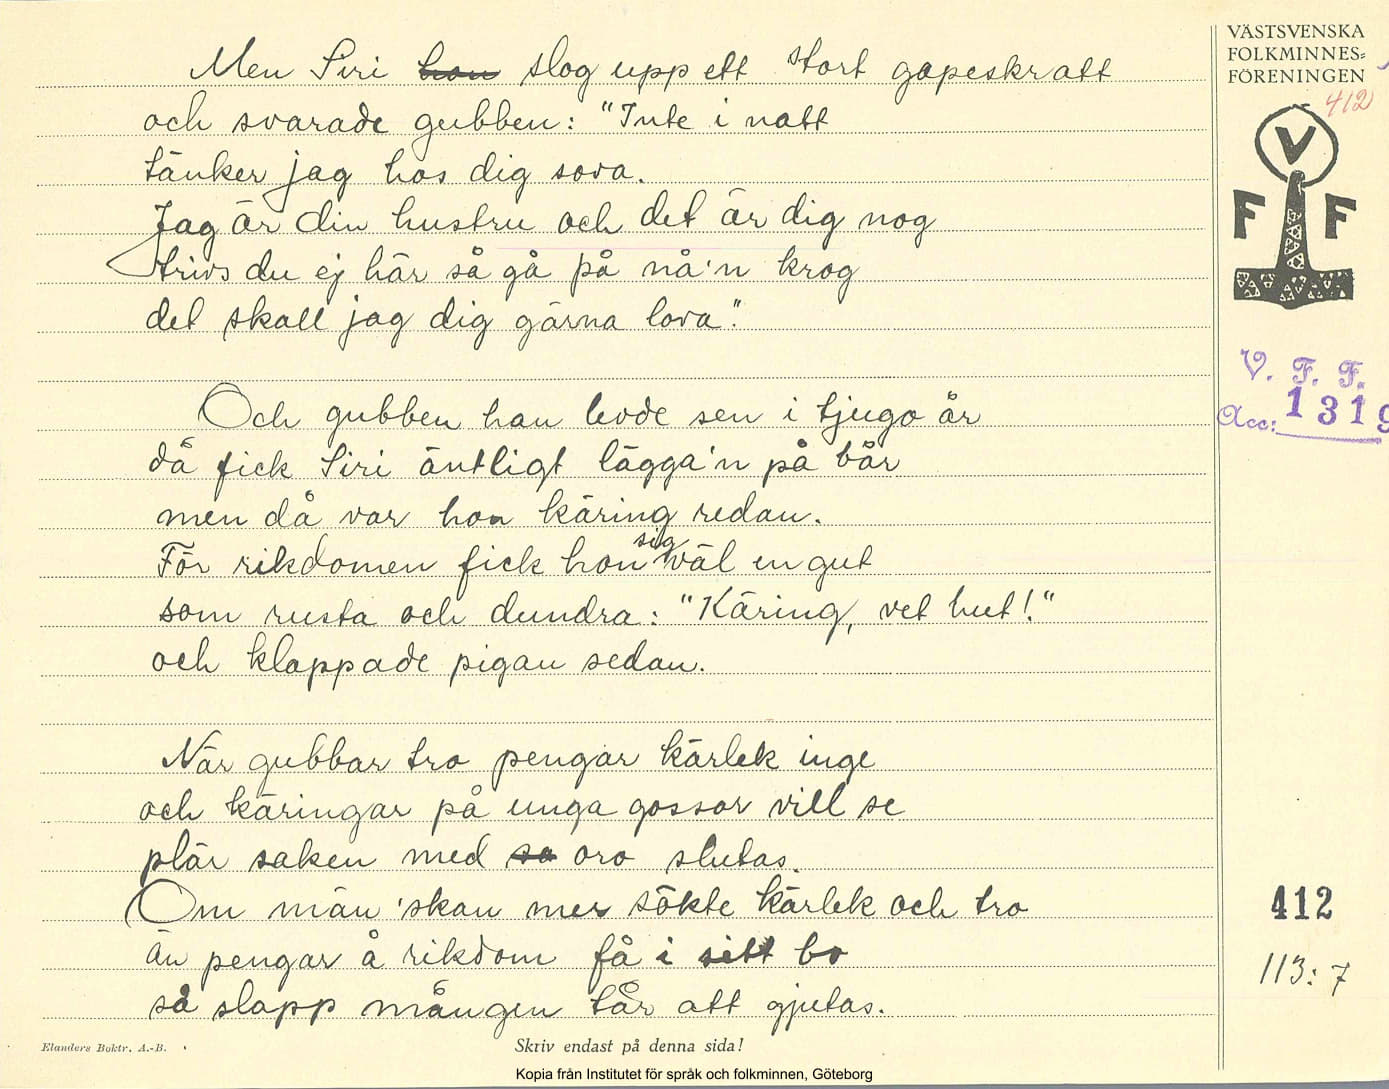 Men Siri hon slog upp ett stort gapeskratt
och svarade gubben: "Inte i natt
tänker jag hos dig sova.
Jag är din hustru och det är dig nog
trivs du ej här så gå på nå'n krog
det skall jag dig gärna lova".
Och gubben han levde sen i tjugo år
då fick Siri äntligt lägga'n på bår
men då var hon käring redan.
För rikdomen fick hon sig väl en gut
som rusta och dundra: "Käring, vet hut!"
och klappade pigan sedan.
När gubbar tro pengar kärlek inge
och käringar på unga gossar vill se
plär saken med so oro slutas.
Om män'skan mer sökte kärlek och tro
än pengar å rikdom få i sitt bo
så slapp mången tår att gjutas.
VÄSTSVENSKA
FOLKMINNES-
FÖRENINGEN
412
V
F F
V. F. F.
Acc: 1319
412
113:7
Elanders Boktr. A.-B.
Skriv endast på denna sida!
Kopia från Institutet för språk och folkminnen, Göteborg